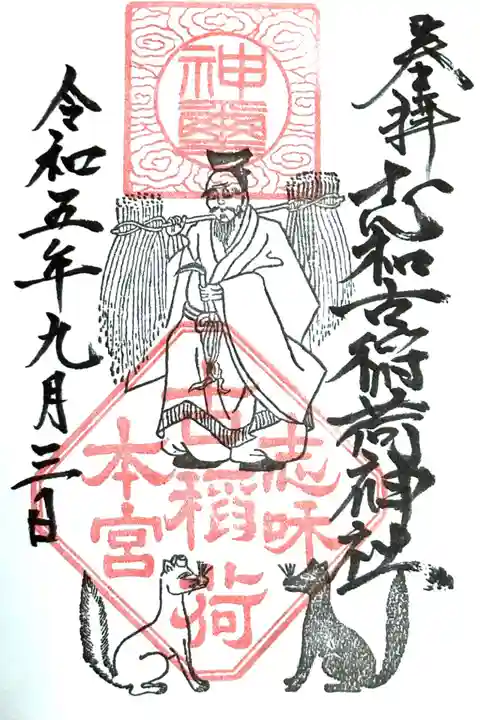 奉拝
志和古稲荷神社
神璽
志味
古稲荷
本宮
令和五年九月三日